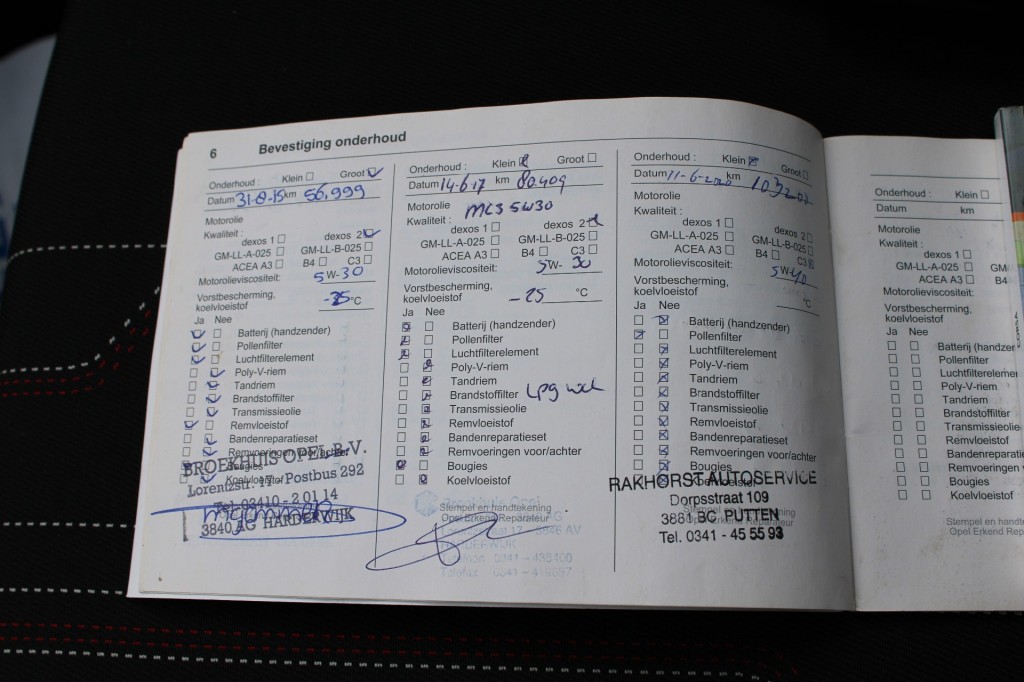 6 Bevestiging onderhoud
Onderhoud : Klein Groot
Datum 31-8-15 km 56.999
Motorolie
Kwaliteit :
dexos 1 dexos 2
GM-LL-A-025 GM-LL-B-025
ACEA A3 B4 C3
Motorolieviscositeit: 5W-30
Vorstbescherming,
koelvloeistof -25 °C
Ja Nee
Batterij (handzender)
Pollenfilter
Luchtfilterelement
Poly-V-riem
Tandriem
Brandstoffilter
Transmissieolie
Remvloeistof
Bandenreparatieset
Remvoeringen voor/achter
Bougies
Koelvloeistof
BROEKHUIS OPEL B.V.
Lorentzstr. 17 - Postbus 292
Tel. 03410 - 2 01 14
3840 AG HARDERWIJK
Onderhoud : Klein Groot
Datum 14-6-17 km 80.409
Motorolie MLS 5W30
Kwaliteit :
dexos 1 dexos 2
GM-LL-A-025 GM-LL-B-025
ACEA A3 B4 C3
Motorolieviscositeit: 5W-30
Vorstbescherming,
koelvloeistof -25 °C
Ja Nee
Batterij (handzender)
Pollenfilter
Luchtfilterelement
Poly-V-riem
Tandriem
Brandstoffilter Lpg wel
Transmissieolie
Remvloeistof
Bandenreparatieset
Remvoeringen voor/achter
Bougies
Koelvloeistof
Broekhuis Opel
Stempel en handtekening
Opel Erkend Reparateur
HARDERWIJK
Onderhoud : Klein Groot
Datum 11-6-2020 km
Motorolie
Kwaliteit :
dexos 1 dexos 2
GM-LL-A-025 GM-LL-B-025
ACEA A3 B4 C3
Motorolieviscositeit: 5W-40
Vorstbescherming,
koelvloeistof °C
Ja Nee
Batterij (handzender)
Pollenfilter
Luchtfilterelement
Poly-V-riem
Tandriem
Brandstoffilter
Transmissieolie
Remvloeistof
Bandenreparatieset
Remvoeringen voor/achter
Bougies
Koelvloeistof
RAKHORST AUTOSERVICE
Dorpsstraat 109
3881 BC PUTTEN
Tel. 0341 - 45 55 93
Onderhoud : Klein
Datum km
Motorolie
Kwaliteit :
dexos 1
GM-LL-A-025 GM
ACEA A3 B4
Motorolieviscositeit:
Vorstbescherming,
koelvloeistof
Ja Nee
Batterij (handzer
Pollenfilter
Luchtfilterelemen
Poly-V-riem
Tandriem
Brandstoffilter
Transmissieolie
Remvloeistof
Bandenreparati
Remvoeringen
Bougies
Koelvloeistof
Stempel en handte
Opel Erkend Rep